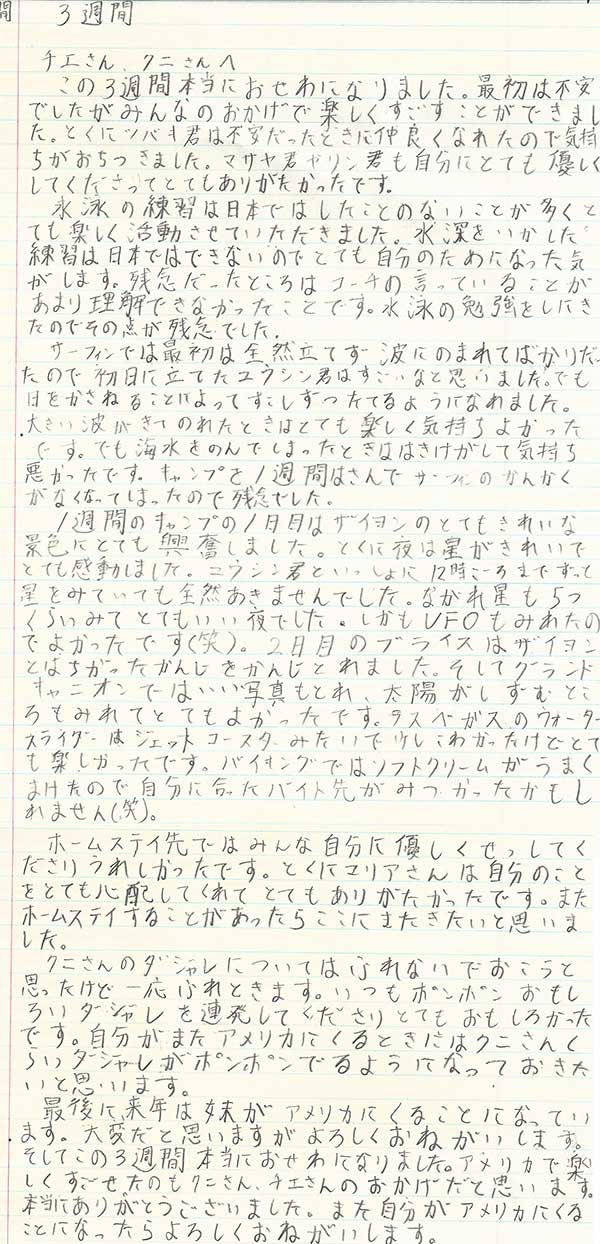 間
3週間
チエさん、クニさんへ
この3週間本当におせわになりました。最初は不安
でしたがみんなのおかげで楽しくすごすことができまし
た。とくにツバキ君は不安だったときに仲良くなれたので気持
ちがおちつきました。マサヤ君やリン君も自分にとても優しく
してくださってとてもありがたかったです。
水泳の練習は日本ではしたことのないことが多くと
ても楽しく活動させていただきました。水深をいかした
練習は日本ではできないのでとても自分のためになった気
がします。残念だったところはコーチの言っていることが
あまり理解できなかったことです。水泳の勉強をしにき
たのでその点が残念でした.
サーフィンでは最初は全然立てず波にのまれてばかりだっ
たので初日に立てたユウシン君はすごいなと思いました。でも
日をかさねることによってすこしずつたてるようになれました。
大きい波がきてのれたときはとても楽しく気持ちよかった
です。でも海水をのんでしまったときははきけがして気持ち
悪かったです。キャンプを1週間はさんでサーフィンのかんかく
がなくなってしまったので残念でした.
1週間のキャンプの1日目はザイヨンのとてもきれいな
景色にとても興奮しました。とくに夜は星がきれいで
とても感動しました。ユウシン君といっしょに12時ごろまでずって
星をみていても全然あきませんでした。ながれ星も5つ
くらいみてとてもいい夜でした。しかもUFOもみれたの
でよかったです(笑)。2日目のブライスはザイヨン
とはちがったかんじをかんじとれました。そしてグランド
キャニオンではいい写真もとれ、太陽がしずむとこ
ろもみれてとてもよかったです。ラスベガスのウォーター
スライダーはジェットコースターみたいで少しこわかったけどとて
も楽しかったです。バイキングではソフトクリームがうまく
まけたので自分に合ったバイト先がみつかったかもし
れません(笑)。
ホームステイ先ではみんな自分に優しくせっしてく
ださりうれしかったです。とくにマリアさんは自分のこと
をとても心配してくれてとてもありがたかったです。また
ホームステイすることがあったらここにまたきたいと思いま
した。
クニさんのダジャレについてはふれないでおこうと
思ったけど一応ふれときます。いつもポンポンおもし
ろいダジャレを連発してくださりとてもおもしろかった
です。自分がまたアメリカにくるときにはクニさんく
らいダジャレがポンポンでるようになっておきた
いと思います。
最後に、来年は妹がアメリカにくることになってい
ます。大変だと思いますがよろしくおねがいします。
そしてこの3週間本当におせわになりました。アメリカで楽
しくすごせたのもクニさん、チエさんのおかげだと思います。
本当にありがとうございました。また自分がアメリカにくる
ことになったらよろしくおねがいします。